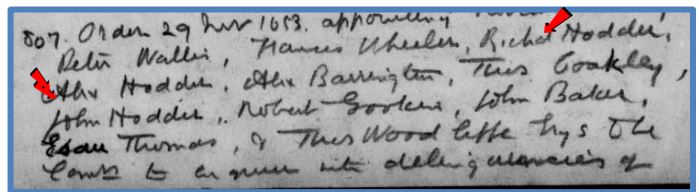 807. Order 29 Nov 1653. appointing
Peter Wallis, Frances Wheeler, Richd Hodder,
Alex Hodder, Alex Barrington, Thos Coakley,
John Hodder, Robert Gookin, John Baker,
Esau Thomas, & Thos Woodliffe to be
to enquire into delinquencies of